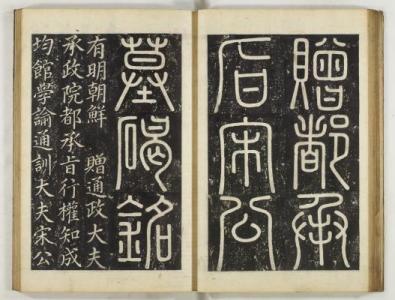 贈都承
旨宋公
墓碣銘
有明朝鮮　贈通政大夫
承政院都承旨行權知成
均館學諭通訓大夫宋公